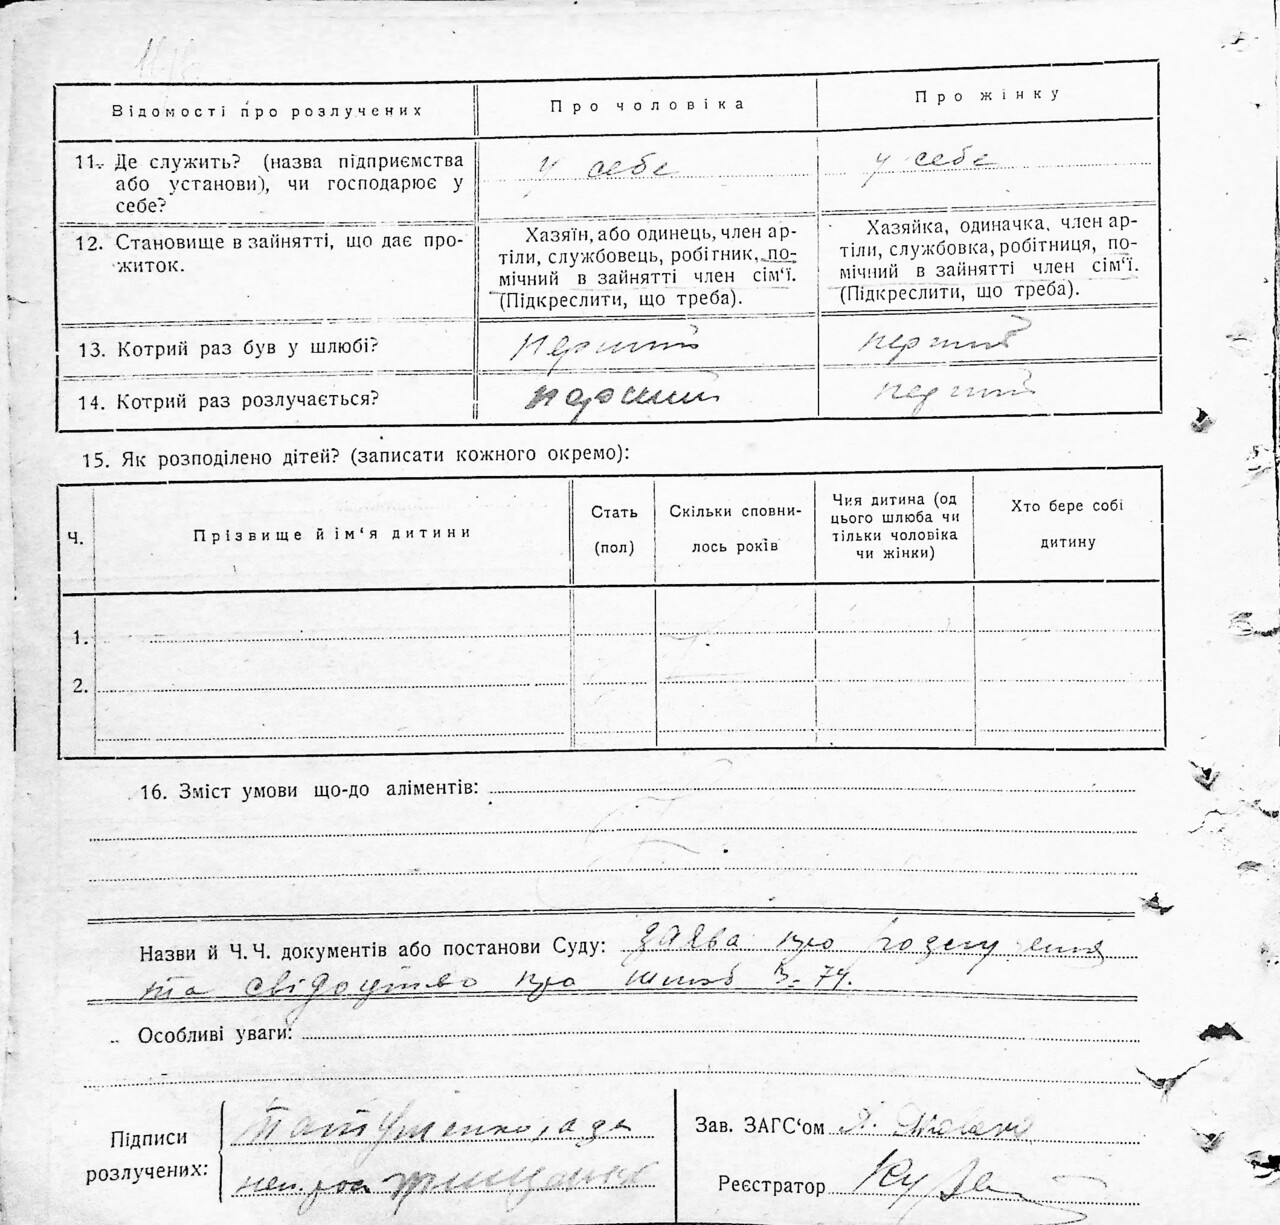 Відомості про розлучених
Про чоловіка
Про жінку
11. Де служить? (назва підприємства
або установи), чи господарює у
себе?
у себе
у себе
12. Становище в зайнятті, що дає про-
житок.
Хазяїн, або одинець, член ар-
тіли, службовець, робітник, по-
мічний в зайнятті член сім‘ї.
(Підкреслити, що треба).
Хазяйка, одиначка, член ар-
тіли, службовка, робітниця, по-
мічний в зайнятті член сім‘ї.
(Підкреслити, що треба).
13. Котрий раз був у шлюбі?
перший
перший
14. Котрий раз розлучається?
перший
перший
15. Як розподілено дітей? (записати кожного окремо):
Ч.
Прізвище й ім‘я дитини
Стать
(пол)
Скільки сповни-
лось років
Чия дитина (од
цього шлюба чи
тільки чоловіка
чи жінки)
Хто бере собі
дитину
1.
2.
16. Зміст умови що-до аліментів:
Назви й Ч. Ч. документів або постанови Суду: заява про розлучення
та свідоцтво про шлюб 74.
Особливі уваги:
Підписи
розлучених:
Зав. ЗАГС‘ом
Реєстратор